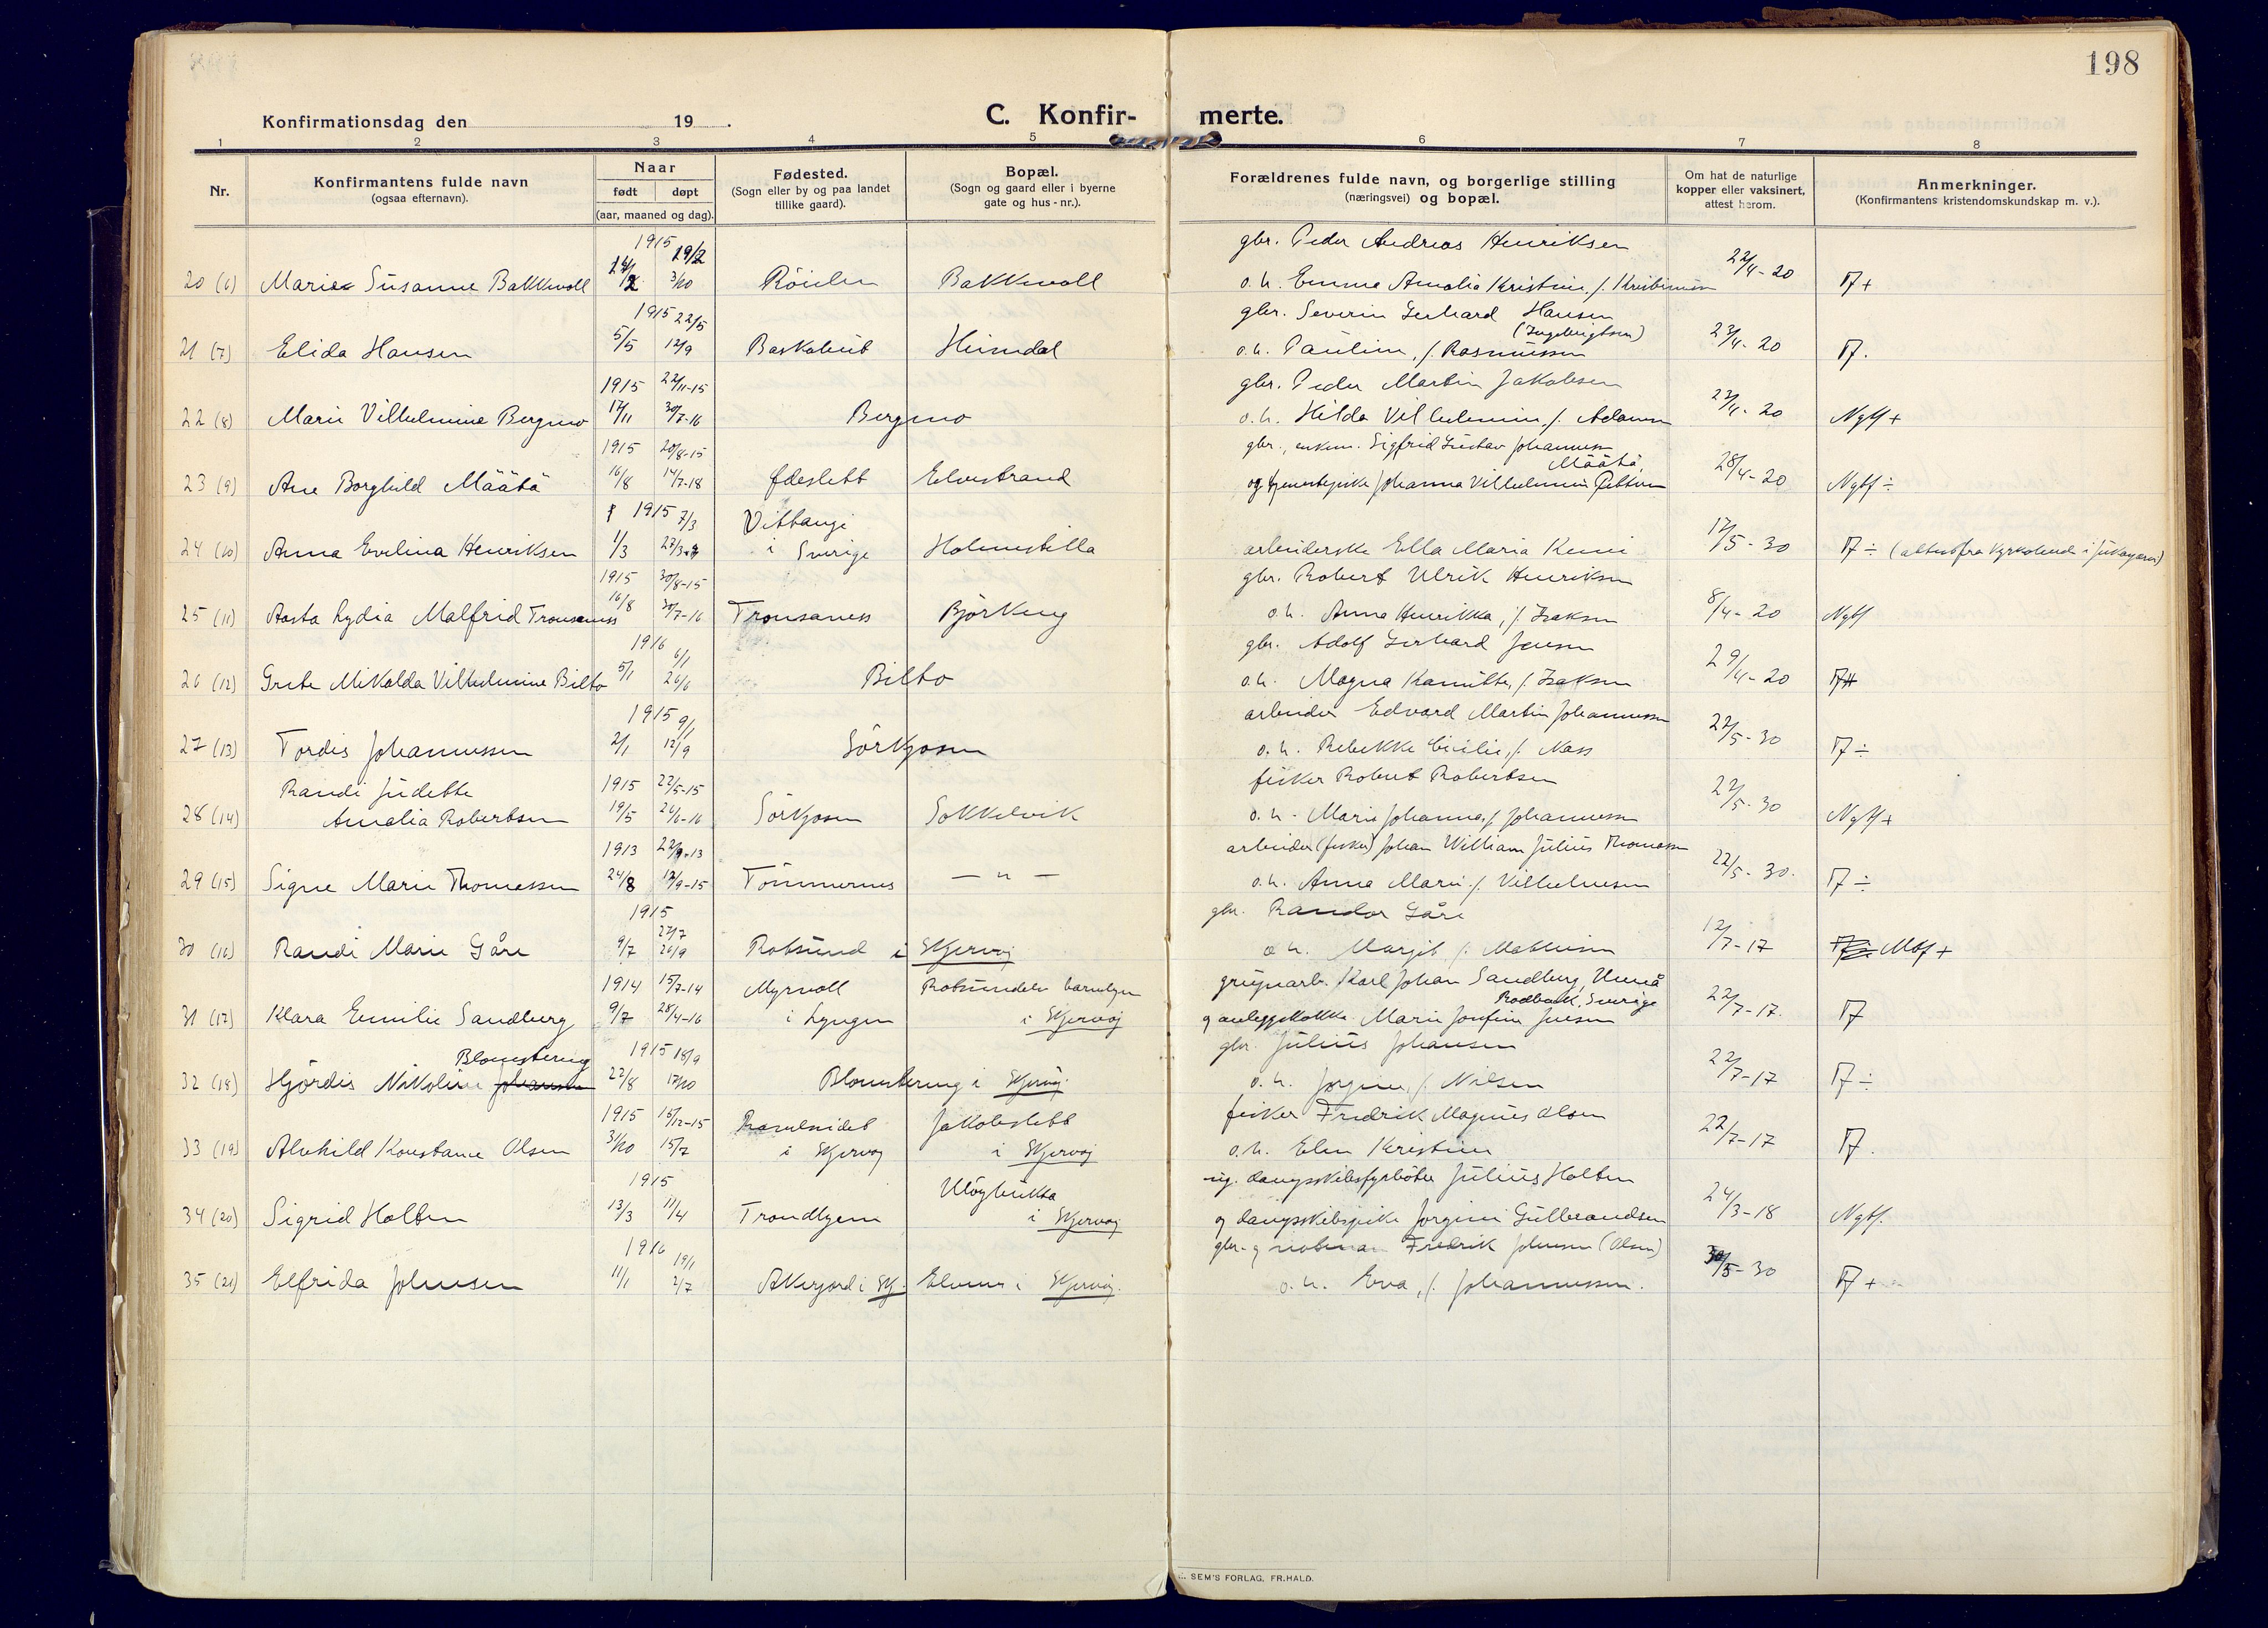 198
Konfirmationsdag den 19 .
C. Konfir- merte.
1 2 3 4 5 6 7 8
Nr.
Konfirmantens fulde navn
(ogsaa efternavn).
Naar
født døpt
(aar, maaned og dag).
Fødested.
(Sogn eller by og paa landet
tillike gaard).
Bopæl.
(Sogn og gaard eller i byerne
gate og hus-nr.).
Forældrenes fulde navn, og borgerlige stilling
(næringsvei) og bopæl.
Om hat de naturlige
kopper eller vaksinert,
attest herom.
Anmerkninger.
(Konfirmantens kristendomskundskap m. v.).
1915 gbr. Peder Andreas Henriksen
20 (6) Marie Susanne Bakkevoll 3/10 Röielen Bakkevoll o. h. Emma Amalia Kristine, f. 22/4-20
1915 22/5 gbr. Severin Gerhard Hansen
(Ingebrigtsen)
21 (7) Elida Hansen 5/5 12/9 Baskabut Heimdal o. h. Pauline, f. Rasmussen 23/4-20
1915 22/11-15 gbr. Peder Martin Jakobsen
22 (8) Marie Vilhelmine Bergmo 17/11 30/7-16 Bergmo o. h. Hilda Vilhelmine, f. 22/4-20 Ngtf +
1915 20/8-15 gbr., enkem. Sigfrid Gustav Johannessen
Määtä,
23 (9) Ane Borghild Määtä 16/8 14/7-18 Ödeslett Elvestrand og Johanna Vilhelmine 28/4-20 Ngtf ÷
1915 7/3 Vittangi
24 (10) Anna Evelina Henriksen 1/3 i Sverige Holmestilla arbeiderske Ella Maria Kemi 12/5-30
1915 30/8-15 gbr. Robert Ulrik Henriksen
25 (11) Aasta Lydia Malfrid Tronsaness 16/8 30/7-16 Tronsaness Björkeng o. h. Anna Henrikka, f. Isaksen 8/4-20 Ngtf
1916 6/1 gbr. Adolf Gerhard Jensen
26 (12) Grete Mikalda Vilhelmine Bilto 5/1 26/6 Bilto o. h. Magna Kamilla, f. Isaksen 29/4-20
1915 9/1 arbeider Edvard Martin Johannessen
27 (13) Tordis Johannessen 2/1 12/9 Sörkjosen o. h. Rebekke Cecilie, f. Nass 22/5-30
Randi Judette 1915 22/5-15 fisker Robert Robertsen
28 (14) Amalia Robertsen 19/5 26/6-16 Sörkjosen Sokkelvik o. h. Marie Johanna, f. Johannessen 22/5-30 Ngtf +
1913 22/9-13 arbeider (fisker) Johan William Julius Thomassen
29 (15) Signe Marie Thomassen 24/8 12/9-15 Tömmernes — " — o. h. Anna Marie f. Vilhelmsen 22/5-30.
1915 27/7 gbr. Randor Gåre
30 (16) Randi Marie Gåre 9/7 26/9 Rotsund i Skjervøj o. h. Margit f. Mathisen 12/7-17 Mtf +
1914 15/7-14 Myrvoll Rotsundelv barnehjem Karl Johan Sandberg, Umeå
Rodbäck, Sverige
31 (17) Klara Emilie Sandberg 9/7 28/4-16 i Lyngen i Skjervøj og anleggskokke Marie Josefine Jensen 22/7-17.
Blomstereng 1915 18/9 gbr. Julius Johansen
32 (18) Hjördis Nikoline Johansen 22/8 17/10 Blomstereng i Skjervøj o. h. Jørgine, f. Nilsen 22/7-17
1915 15/12-15 Jakobslett fisker Fredrik Magnus Olsen
33 (19) Alvhild Konstance Olsen 31/10 15/7 i Skjervøj i Skjervøj o. h. Elen Kristine 22/7-17
1915 Uløybukta ug. dampskibsfyrbøter Julius Holten
34 (20) Sigrid Holten 13/3 11/4 Trondhjem i Skjervøj og dampskibspike Jørgine Gulbrandsen 24/3-18 Ngtf.
1916 19/1 gbr. og notbas Fredrik Johnsen (Olsen)
35 (21) Elfrida Johnsen 11/1 2/7 Akkerfjord i Skj. Elvenes i Skjervøj. o. h. Eva, f. Johannessen. 30/5-30
E. SEM'S FORLAG, FR.HALD.